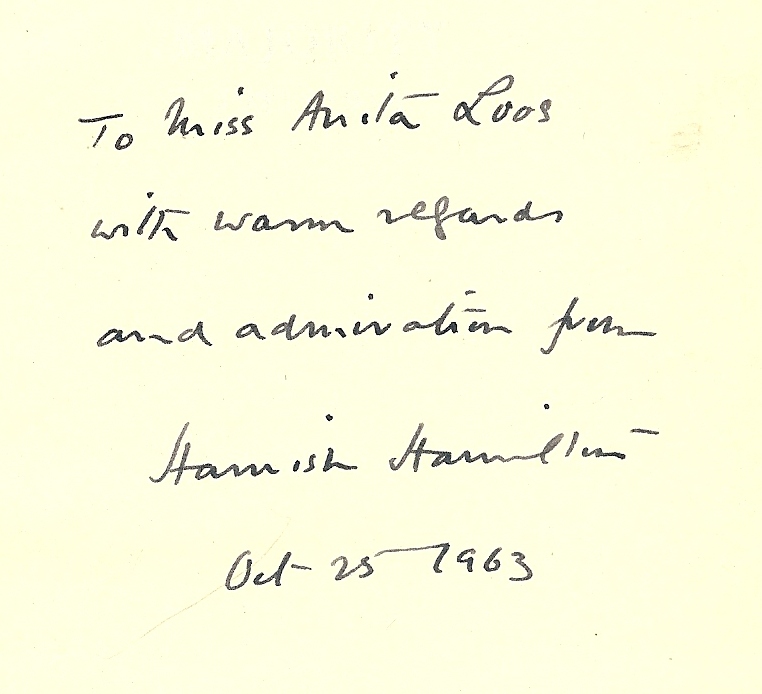 To Miss Anita Loos
with warm regards
and admiration from
Hamish Hamilton
Oct 25 1963